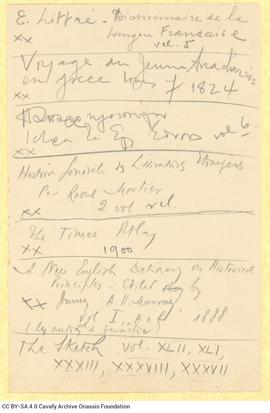 E. Littré - Dictionnaire de la
langue Francaise
xx vol. 5
Voyage du Jeune Anacharsis
en Grèce tome 7 1824
xx
vol 6
xx
Histoire Générale des Littératures Etrangères
Par Raoul Mortier
xx 2 vol. rel.
The Times Atlas
xx 1900
A New English Dictionary on Historical
Principles - Edited by
xx James A. H. Murray
vol I. 1888
The Sketch. vol. XLII, XLI,
XXXIII, XXXVIII, XXXVII
CC BY-SA 4.0 Cavafy Archive Onassis Foundation